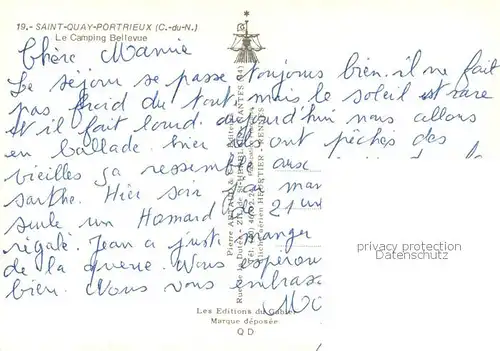 19.- SAINT-QUAY-PORTRIEUX (C.-du-N.)
Le Camping Bellevue
Chère Mamie
Le séjour se passe toujours bien. il ne fait
pas froid du tout, mais le soleil est rare
et il fait lourd. aujourd'hui nous allons
en ballade. hier ils ont pêchés des
vieilles ça ressemble aux
sarthe. Hier soir j'ai man
seule un Homard de 21 cm
régale. Jean a juste manger
de la queue. Nous espérons
bien. Nous vous embrass
privacy protection
Datenschutz
Les Editions du Gabier
Marque déposée
QD